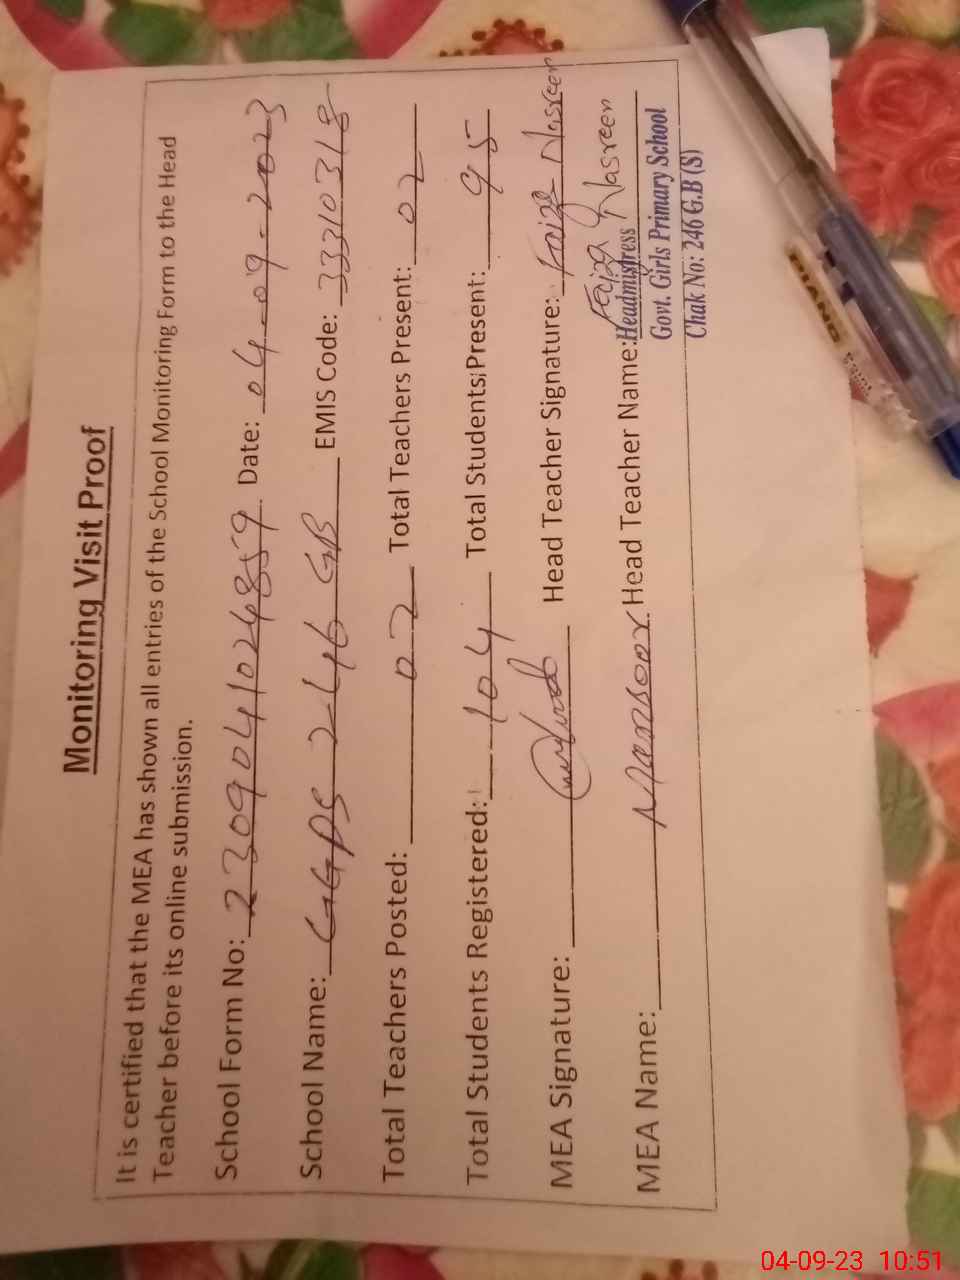 Monitoring Visit Proof
It is certified that the MEA has shown all entries of the School Monitoring Form to the Head
Teacher before its online submission.
School Form No: 2309041024859 Date: 04-09-2023
School Name: GGPS 246 GB EMIS Code: 33310318
Total Teachers Posted: 02 Total Teachers Present: 02
Total Students Registered: 104 Total Students Present: 95
MEA Signature: Head Teacher Signature: Faiza Nasreen
MEA Name: Mansoor Head Teacher Name: Faiza Nasreen
Headmistress
Govt. Girls Primary School
Chak No: 246 G.B (S)
PIANO
04-09-23 10:51